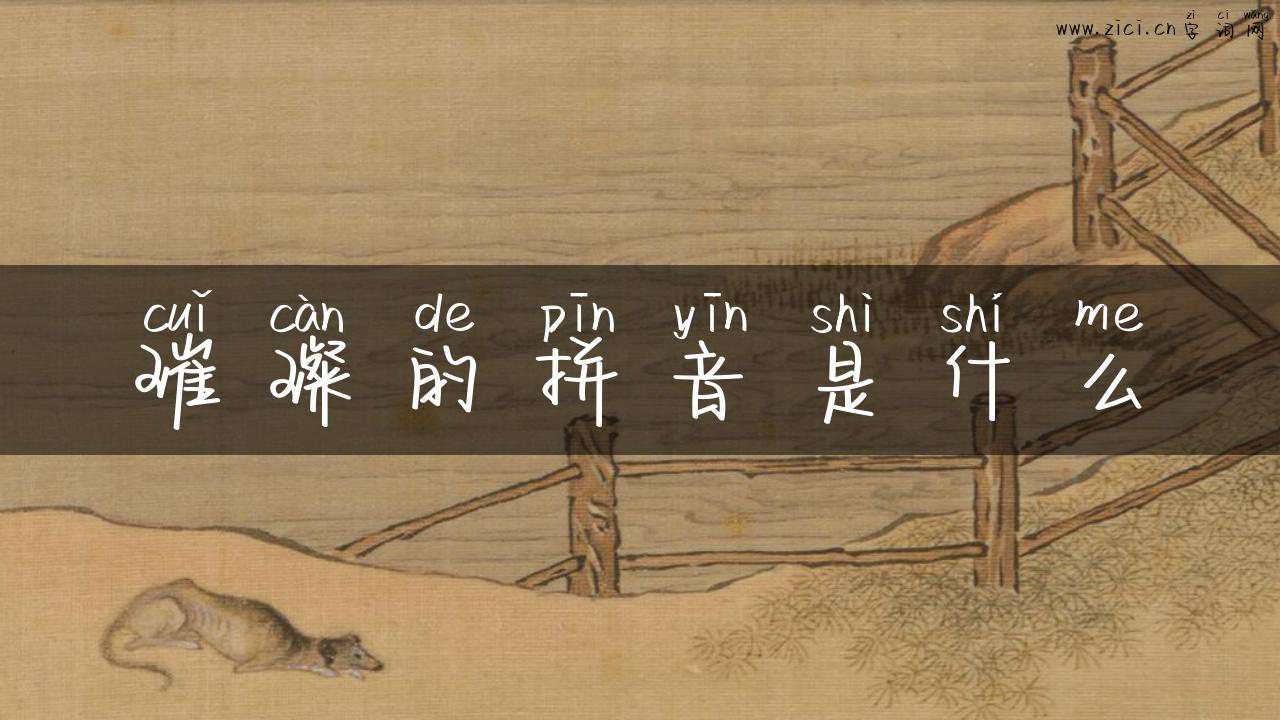 zì cí wǎng
www.zici.cn 字词网
cuǐ càn de pīn yīn shì shí me
璀璨的拼音是什么